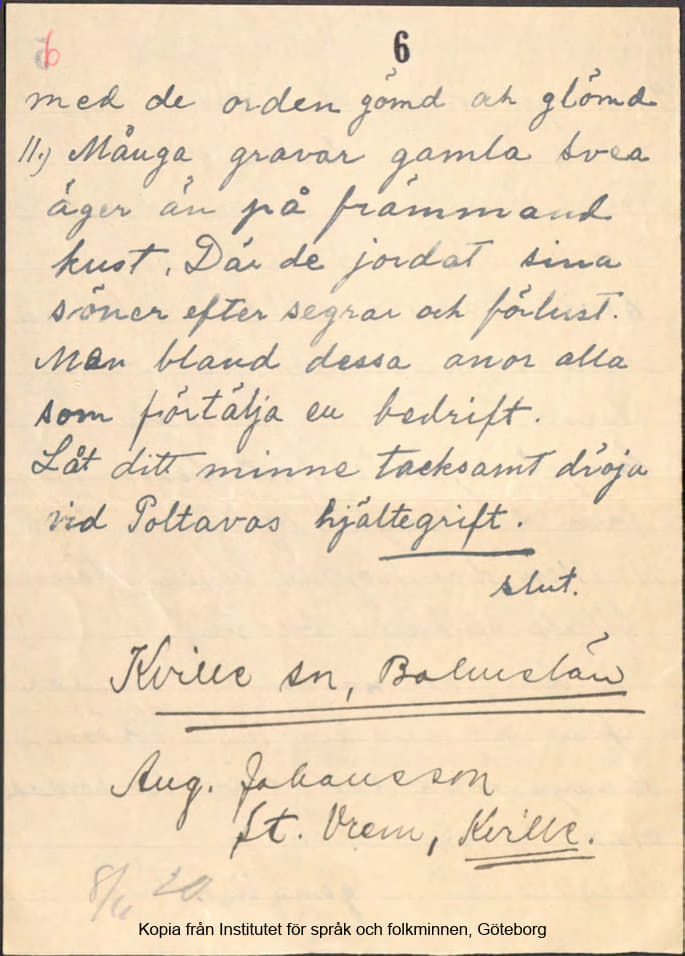 6 6
med de orden gömd och glömd
11.) Många gravar gamla Svea
äger än på främmand
kust. Där de jordat sina
söner efter segrar och förlust.
Men bland dessa anor alla
som förtälja en bedrift.
Låt ditt minne tacksamt dröja
vid Poltavas hjältegrift.
slut.
Kville sn, Bohuslän
Aug. Johansson
St. Vrem, Kville.
20.
Kopia från Institutet för språk och folkminnen, Göteborg